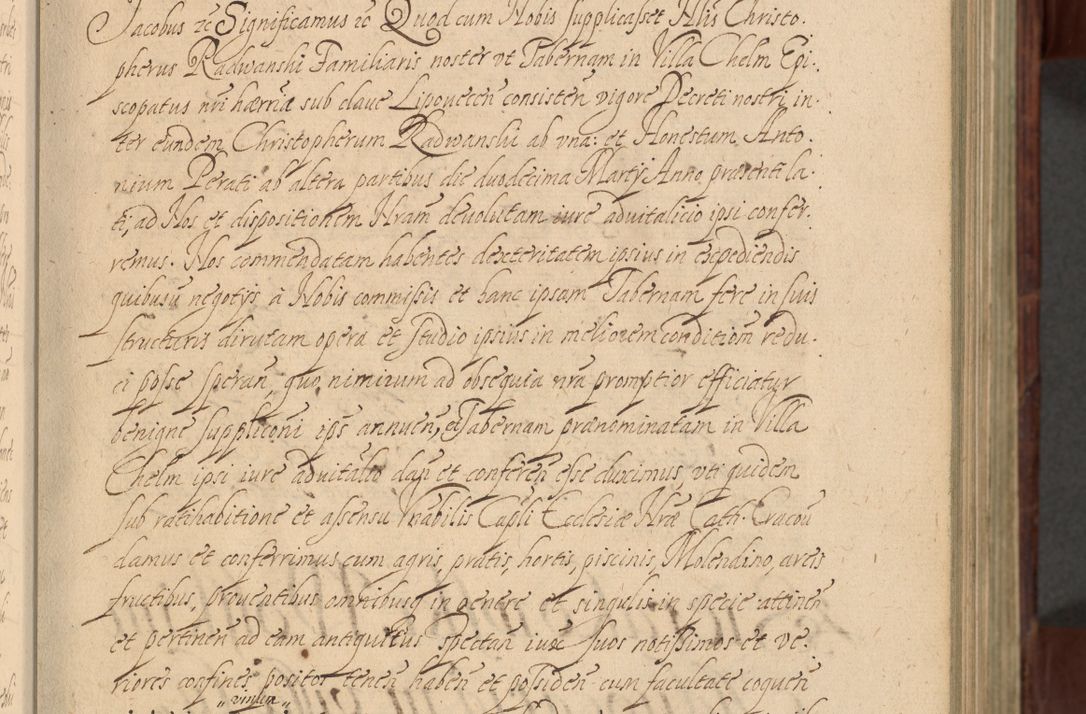 Jacobus etc Significamus etc Quod cum Nobis supplicasset Nlis Christo.
pherus Radwanski Familiaris noster ut Tabernam in Villa Chelm Epi.
scopatus nri haerria sub clave Lipovecen consisten vigore Decreti nostri in.
ter eundem Christopherum Radwanski ab una: et Honestum Anto.
nium Perati ab altera partibus die duodecima Martÿ Anno praesenti la.
ti, ad Nos et dispositionem Nram devolutam iure advitalicio ipsi confer.
remus. Nos commendatam habentes dexteritatem ipsius in expediendis
quibusvis negotÿs à Nobis commissis et hanc ipsam Tabernam fere in suis
structuris dirutam opera et studio ipsius in meliorem conditiom redu.
ci posse speran, quo nimirum ad obsequia nra promptior efficiatur
benigne suppliconi ips annuen, et Tabernam praenominatam in Villa
Chelm ipsi iure advitalio dan et conferen esse duximus, uti quidem
sub ratihabitione et assensu Vnabilis Capli Ecclesiae Nrae Cath. Cracou
damus et conferrimus cum agris, pratis, hortis, piscinis, Molendino, areis
fructibus, proventibus omnibusq in genere et singulis in specie attinen
et pertinen ad eam antiquitus spectan iuxe suos notissimos et ve.
riores confines positos tenen haben et possiden cum facultate coquen